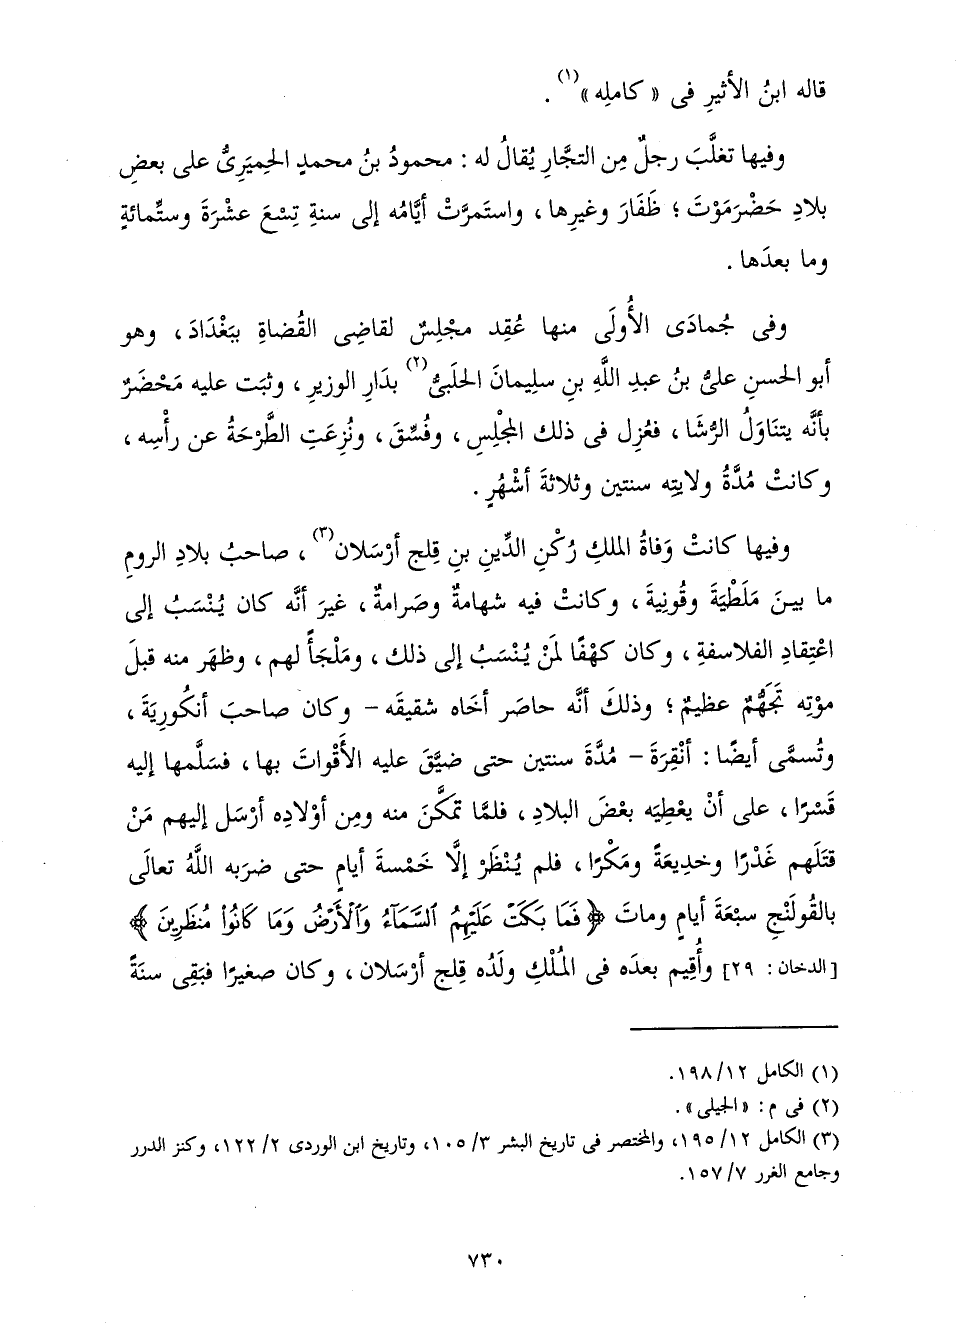 قاله ابنُ الأثيرِ فى «كاملِه»(١) .
وفيها تغلَّبَ رجلٌ مِن التجَّارِ يُقالُ له : محمودُ بنُ محمدٍ الحِميَرِىُّ على بعضِ
بلادِ حَضْرَمَوْتَ ؛ ظَفَارَ وغيرِها ، واستمرَّتْ أيَّامُه إلى سنةِ تِسْعَ عشْرَةَ وستِّمائةٍ
وما بعدَها .
وفى جُمادَى الأُولَى منها عُقِد مجْلِسٌ لقاضِى القُضاةِ ببَغْدَادَ ، وهو
أبو الحسنِ علىُّ بنُ عبدِ اللَّهِ بنِ سليمانَ الحلَبىُّ(٢) بدَارِ الوزيرِ ، وثبَت عليه مَحْضَرٌ
بأنَّه يتنَاوَلُ الرُّشَا ، فعُزِل فى ذلك المجْلِسِ ، وفُسِّقَ ، ونُزِعَتِ الطَّرْحَةُ عن رأْسِه ،
وكانتْ مُدَّةُ ولايتِه سنتين وثلاثةَ أشْهُرٍ .
وفيها كانتْ وَفاةُ الملكِ رُكْنِ الدِّينِ بنِ قِلج أرْسَلان(٣) ، صاحبُ بلادِ الرومِ
ما بينَ مَلَطْيَةَ وقُونِيةَ ، وكانتْ فيه شهامةٌ وصَرامةٌ ، غيرَ أنَّه كان يُنْسَبُ إلى
اعْتِقادِ الفلاسفةِ ، وكان كهْفًا لمَنْ يُنْسَبُ إلى ذلك ، ومَلْجَأً لهم ، وظهَر منه قبلَ
موْتِه تَجَهُّمٌ عظيمٌ ؛ وذلكَ أنَّه حاصَر أخَاه شقيقَه – وكان صاحبَ أنكُورِيَةَ ،
وتُسمَّى أيضًا : أنْقِرَةَ – مُدَّةَ سنتين حتى ضيَّقَ عليه الأَقْواتَ بها ، فسَلَّمها إليه
قَسْرًا ، على أنْ يعْطِيَه بعْضَ البلادِ ، فلمَّا تمَكَّنَ منه ومِن أوْلادِه أرْسَل إليهم مَنْ
قتَلَهم غَدْرًا وخديعَةً ومَكْرًا ، فلم يُنْظَرْ إلَّا خَمْسةَ أيامٍ حتى ضرَبه اللَّهُ تعالَى
بالقُولَنْجِ سبْعَةَ أيامٍ وماتَ ﴿ فَمَا بَكَتْ عَلَيْهِمُ ٱلسَّمَآءُ وَٱلْأَرْضُ وَمَا كَانُواْ مُنظَرِينَ ﴾
[الدخان : ٢٩] وأُقِيم بعدَه فى المُلْكِ ولَدُه قِلِج أرْسَلان ، وكان صغيرًا فبَقِى سنةً
(١) الكامل ١٢/ ١٩٨.
(٢) فى م : «الجيلى» .
(٣) الكامل ١٢/ ١٩٥، والمختصر فى تاريخ البشر ٣/ ١٠٥، وتاريخ ابن الوردى ٢/ ١٢٢، وكنز الدرر
وجامع الغرر ٧/ ١٥٧.
٧٣٠